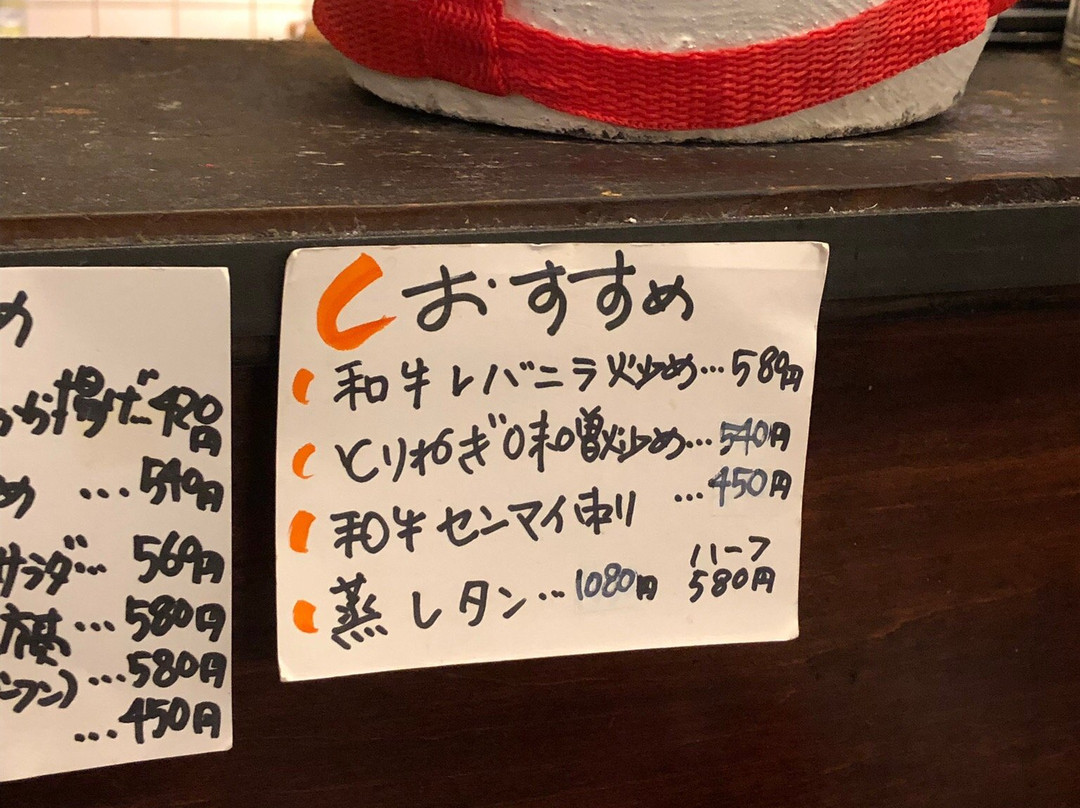 め
から揚げ…420円
め …540円
サラダ…569円
…580円
…580円
…450円
おすすめ
和牛レバニラ炒め…580円
とりねぎ味噌炒め…540円
和牛センマイ刺り …450円
蒸しタン…1080円 ハーフ580円